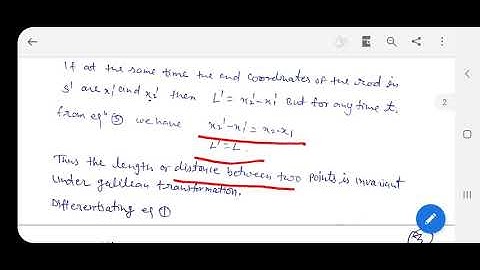 If at the same time the end coordinates of the rod in
S' are x1' and x2' then L' = x2' - x1' But for any time t.
from eqn ⑤ we have x2' - x1' = x2 - x1
L' = L.
Thus the length or distance between two points is invariant
under galilean transformation.
Differentiating eq ①
2